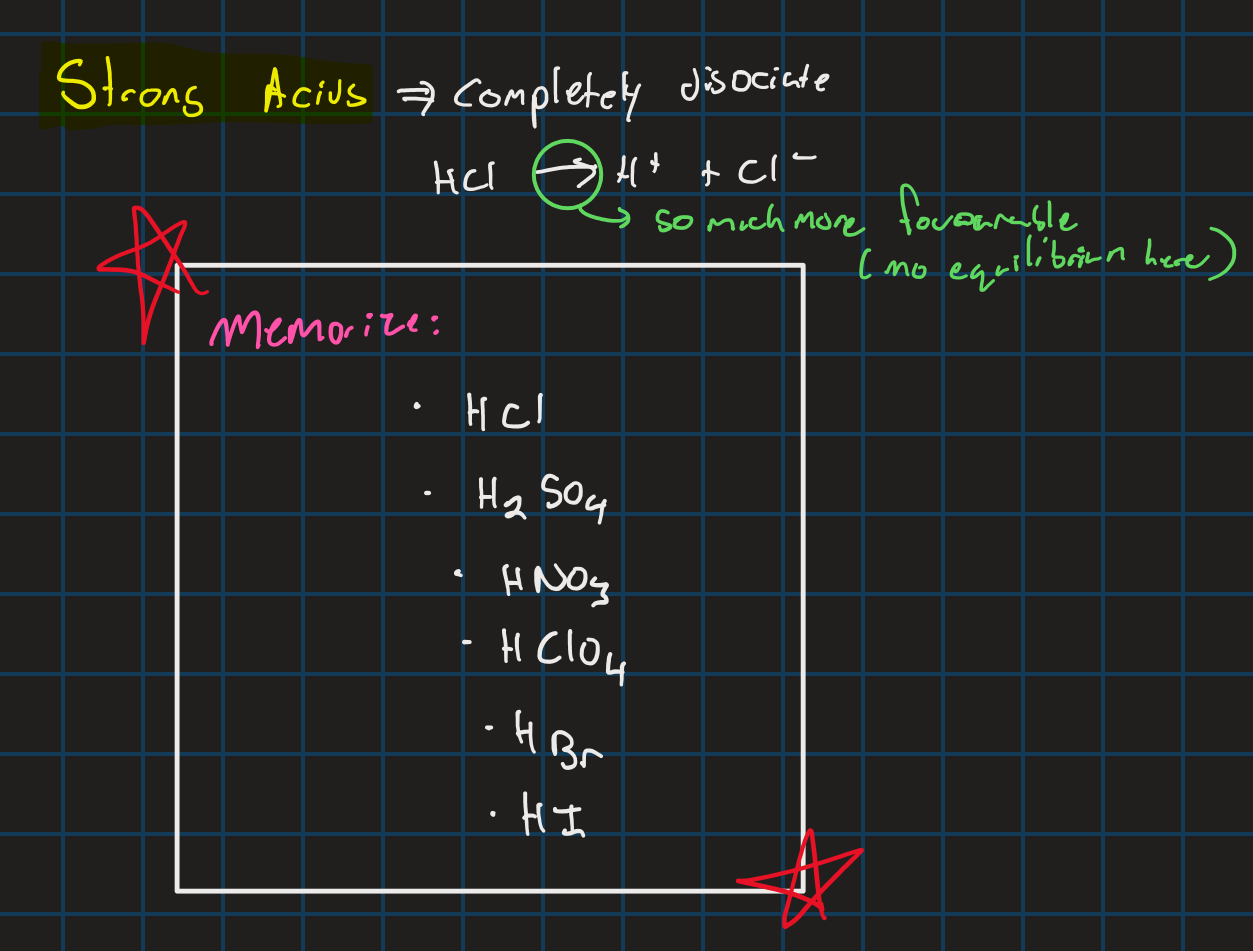 Strong Acids ⇒ Completely disociate
HCl → H⁺ + Cl⁻
so much more favourable
(no equilibrium here)
Memorize:
· HCl
· H₂SO₄
· HNO₃
· HClO₄
· HBr
· HI